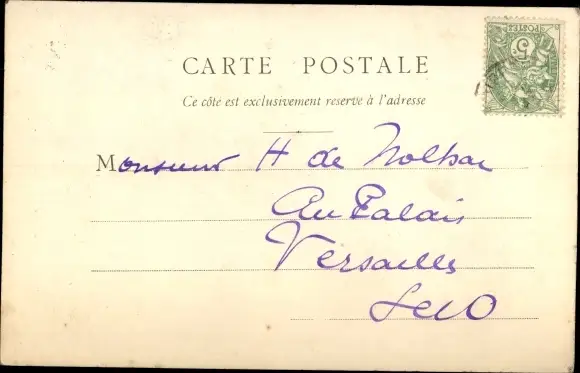 CARTE POSTALE
Ce côté est exclusivement réservé à l'adresse
Monsieur H de Nolhac
Au Palais
Versailles
S et O
5
POSTES